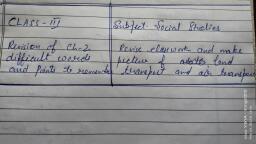 CLASS - III
Subject Social Studies
Revision of Ch-2
difficult words
and Points to remember
Revise classwork and make
picture of water, land
transport and air transport